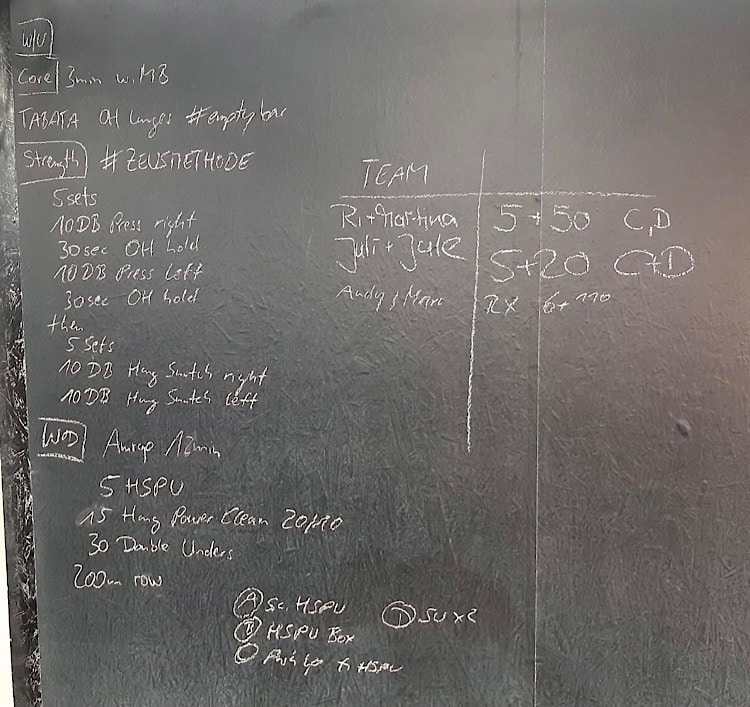 W/U
Core 3min w. MB
TABATA OH Lunges #emptybar
Strength #ZEUSMETHODE
5 sets
10 DB Press right
30sec OH hold
10 DB Press Left
30sec OH hold
then
5 sets
10 DB Hang Snatch right
10 DB Hang Snatch Left
WOD Amrap 12min
5 HSPU
15 Hang Power Clean
30 Double Unders
200m row
A Sc. HSPU
B HSPU Box
C HSPU
D SU x2
TEAM
Ri + Martina 5+50 C,D
Juli + 5+20 C+D
Andy + Marc RX 6+110